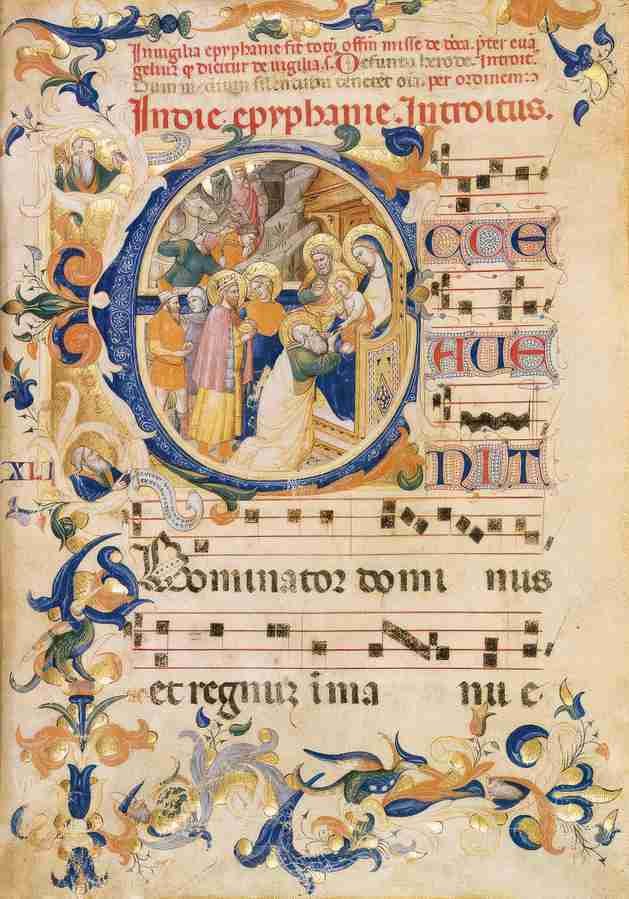 Inuigilia epyphanie fit totũ offm misse de dñica. pter euã
gelium dicitur de uigilia. s. Defuncto herode. Introit.
Dum medium silentium teneret oia. per ordinem
Indie epyphanie. Introitus.
E CCE
AUE
NIT
XLI
Dominator domi nus
et regnuz ima nu e